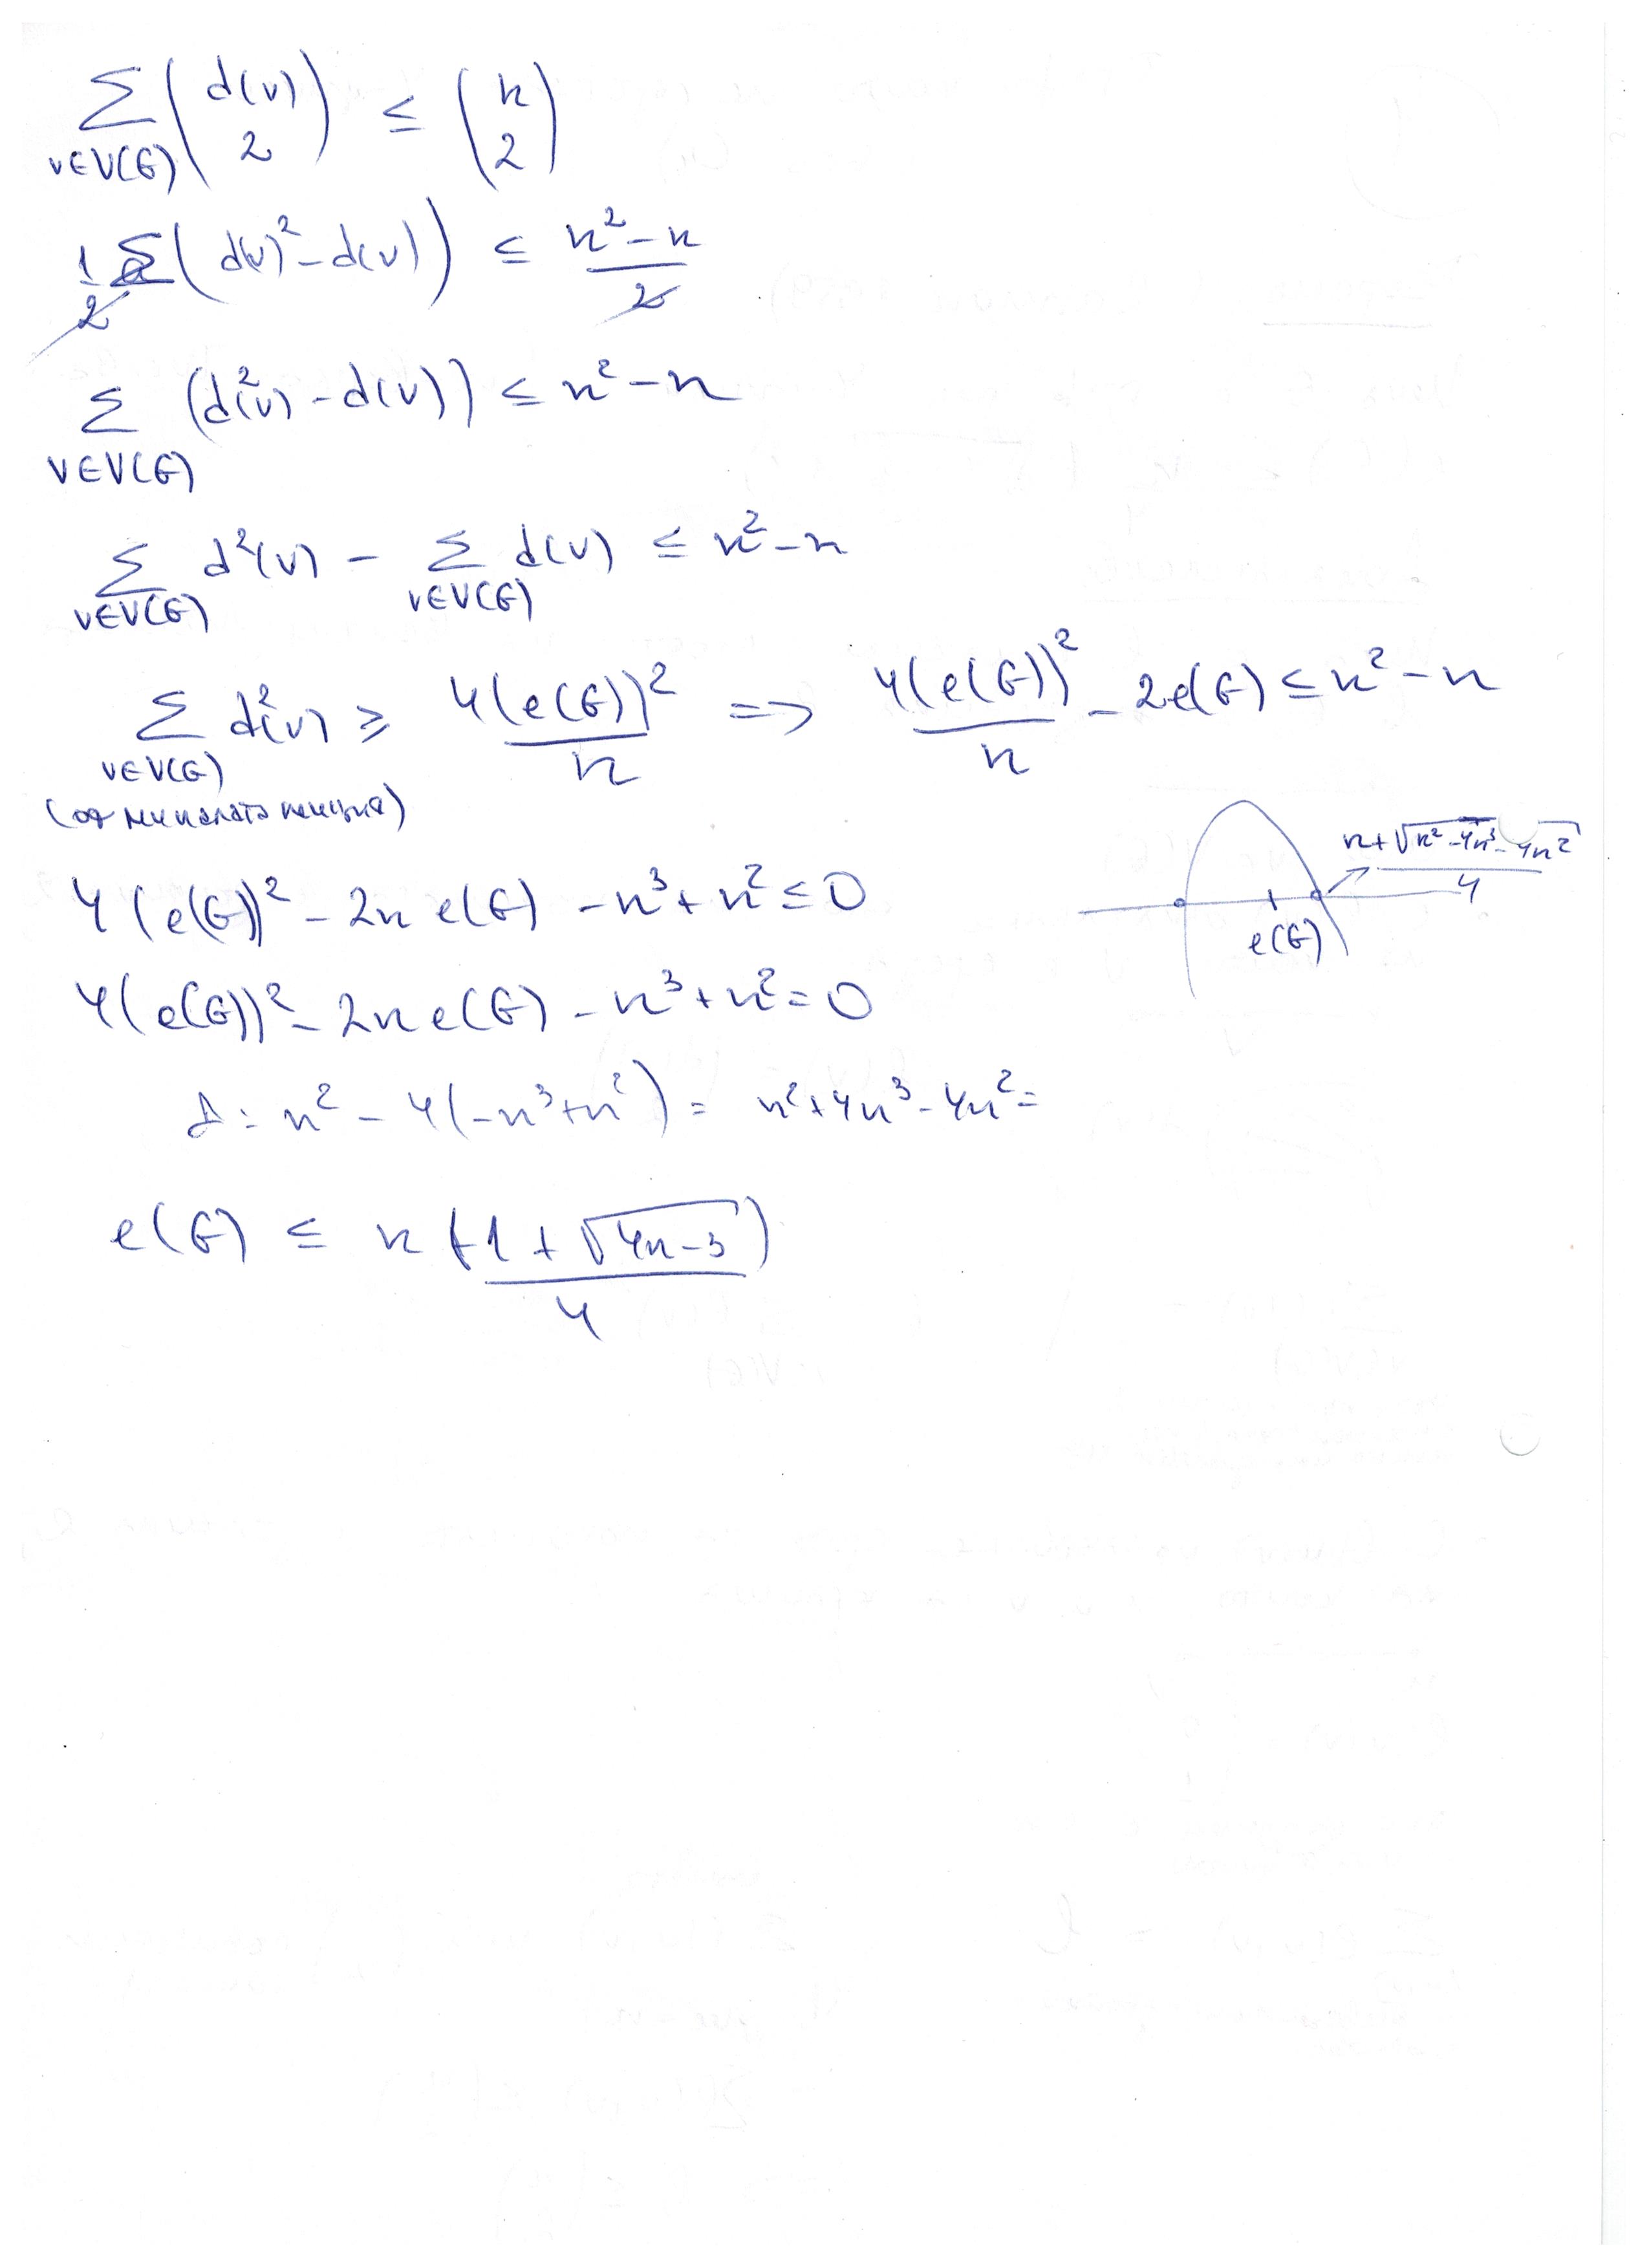 ∑_{v∈V(G)} (d(v) 2) ≤ (n 2)
1/2 ∑ (d(v)² - d(v)) ≤ (n² - n)/2
∑_{v∈V(G)} (d²(v) - d(v)) ≤ n² - n
∑_{v∈V(G)} d²(v) - ∑_{v∈V(G)} d(v) ≤ n² - n
∑_{v∈V(G)} d²(v) ≥ 4(e(G))²/n => 4(e(G))²/n - 2e(G) ≤ n² - n
(от миналата лекция)
4(e(G))² - 2n e(G) - n³ + n² ≤ 0
(n + √(n² - 4n³ - 4n²))/4
e(G)
4(e(G))² - 2n e(G) - n³ + n² = 0
D = n² - 4(-n³ + n²) = n² + 4n³ - 4n² =
e(G) ≤ n (1 + √(4n-3))/4